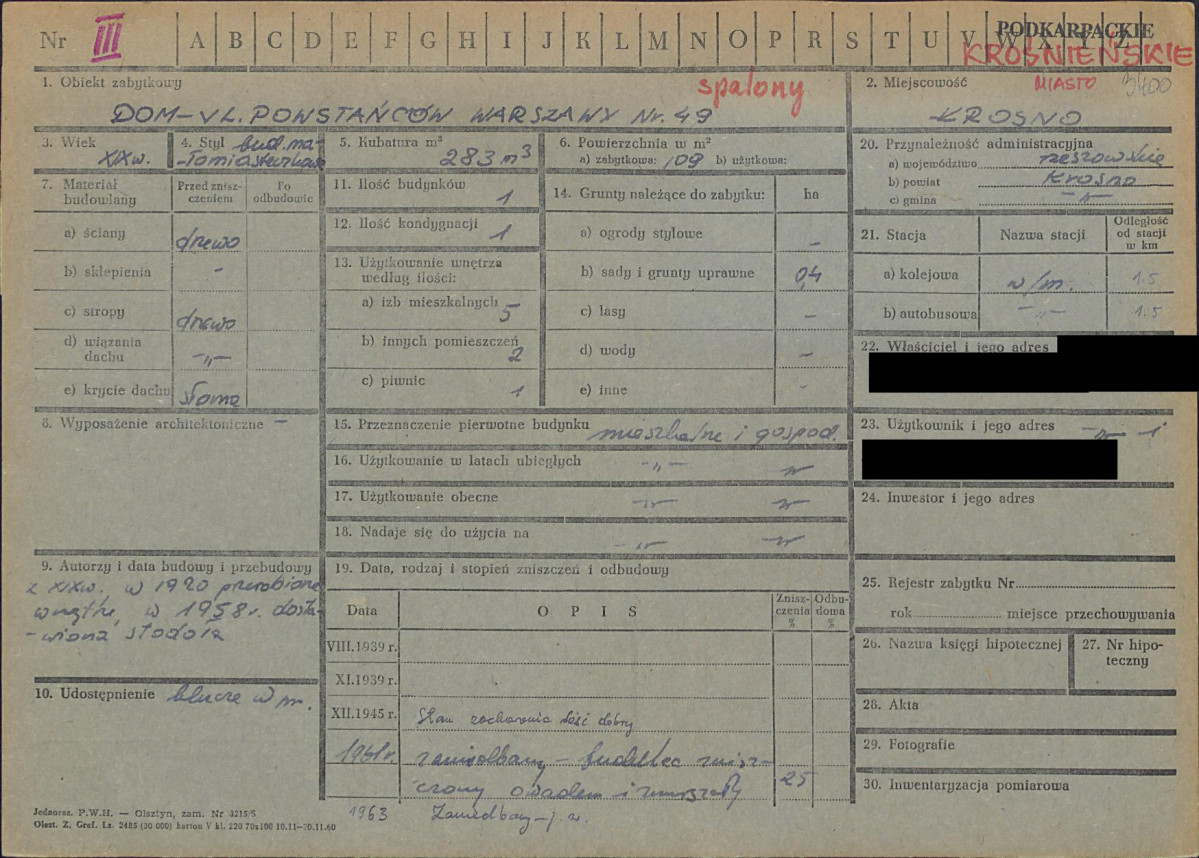 Nr III A B C D E F G H I J K L M N O P R S T U V W X Y Z
PODKARPACKIE
KROŚNIEŃSKIE
1. Obiekt zabytkowy
spalony
DOM – UL. POWSTAŃCÓW WARSZAWY Nr. 49
2. Miejscowość
MIASTO 3400
KROSNO
3. Wiek
XIX w.
4. Styl bud. ma-
-łomiasteczkowe
5. Kubatura m³
283 m³
6. Powierzchnia w m²
a) zabytkowa: 109 b) użytkowa:
7. Materiał budowlany
Przed znisz-
czeniem
Po
odbudowie
a) ściany drewo
b) sklepienia -
c) stropy drewo
d) wiązania
dachu -"-
e) krycie dachu słoma
8. Wyposażenie architektoniczne –
9. Autorzy i data budowy i przebudowy
z XIX w. w 1920 przerobione
wnętrze, w 1958 r. dosta-
-wiona stodoła
10. Udostępnienie klucze w m.
11. Ilość budynków
1
12. Ilość kondygnacji
1
13. Użytkowanie wnętrza
według ilości:
a) izb mieszkalnych 5
b) innych pomieszczeń
2
c) piwnic 1
14. Grunty należące do zabytku: ha
a) ogrody stylowe –
b) sady i grunty uprawne 0,4
c) lasy –
d) wody –
e) inne -
15. Przeznaczenie pierwotne budynku mieszkalne i gospod.
16. Użytkowanie w latach ubiegłych -"- "
17. Użytkowanie obecne -"- "
18. Nadaje się do użycia na -"- -"-
19. Data, rodzaj i stopień zniszczeń i odbudowy
Data OPIS Znisz-
czenia
% Odbu-
dowa
%
VIII.1939 r.
XI.1939 r.
XII.1945 r. Stan zachowania dość dobry
1961 r. zaniedbany – budulec znisz-
czony owadem i 25
1963 Zaniedbany – j. w.
20. Przynależność administracyjna
a) województwo rzeszowskie
b) powiat Krosno
c) gmina -"-
21. Stacja Nazwa stacji Odległość
od stacji
w km
a) kolejowa w/m. 1.5
b) autobusowa -"- 1.5
22. Właściciel i jego adres
23. Użytkownik i jego adres -"- i
24. Inwestor i jego adres
25. Rejestr zabytku Nr
rok miejsce przechowywania
26. Nazwa księgi hipotecznej
27. Nr hipo-
teczny
28. Akta
29. Fotografie
30. Inwentaryzacja pomiarowa
Jednoraz. P.W.H. — Olsztyn, zam. Nr 3215/S
Olszt. Z. Graf. Lz. 2485 (30 000) karton V kl. 220 70x100 10.11–30.11.60